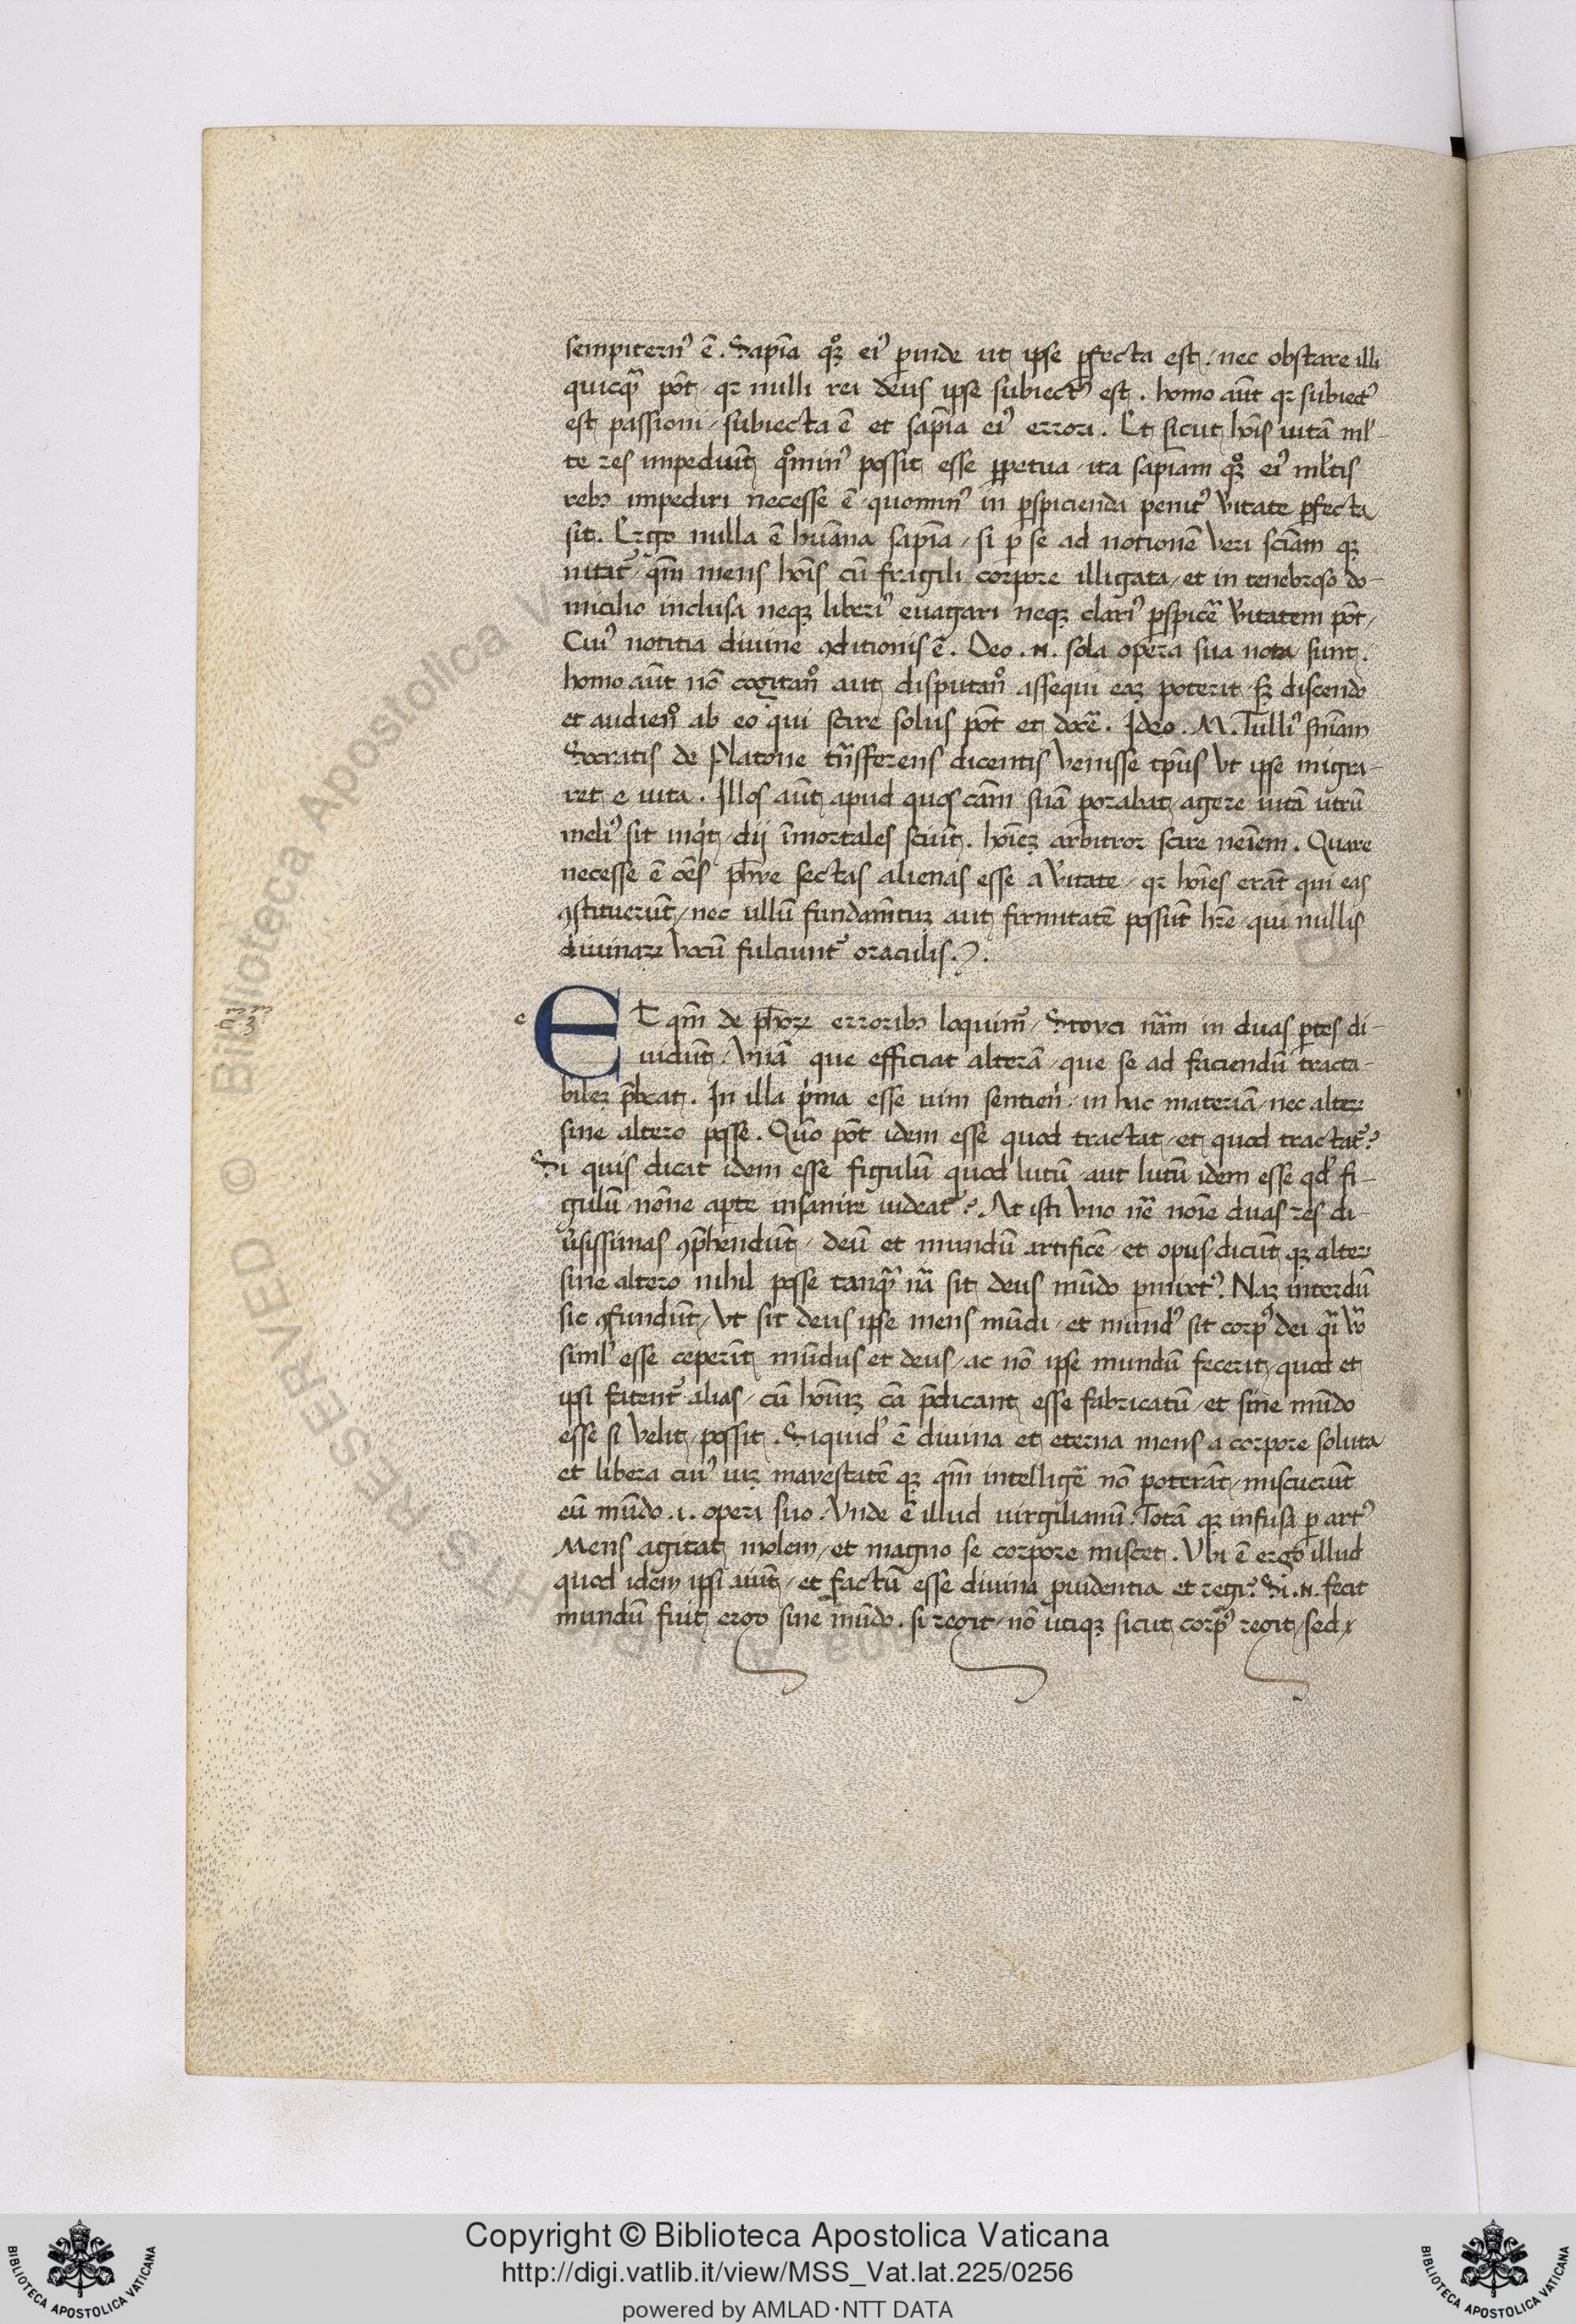 sempitern᾿ ē. Sapīa qꝫ ei᾿ ꝓinde ut ipse ꝑfecta est. nec obstare illi
quicꝗ̄ pōt / qꝛ nulli rei deus ipse subiect᾿ est. homo aūt qꝛ subiect᾿
est passioni / subiecta ē et sapīa ei᾿ errori. Et sicut hoīs uitā ml᾿-
te res impediūt quomin᾿ possit esse ꝑpetua / ita sapīam qꝫ ei᾿ ml᾿tis
rebꝫ impediri necesse ē / quomin᾿ in ꝑspicienda penit᾿ v̄itate ꝑfecta
sit. Ergo nulla ē hūana sapīa / si ꝑ se ad notionē veri sciām qꝫ
nitat᾿ / qm̄ mens hoīs cū fragili corpore illigata / et in tenebroso do-
micilio inclusa neqꝫ liberi᾿ euagari neqꝫ clari᾿ ꝑspicē v̄itatem pōt /
Cui᾿ notitia diuine ꝯditionis ē. Deo .n. sola opera sua nota sunt.
homo aūt nō cogitan̄o aut disputan̄o assequi eaꝫ poterit / sꝫ discendo
et audien̄o ab eo qui scire solus pōt et docē. Ideo .M. Tulli᾿ sn̄iam
Socratis de Platone trā̄sferens dicentis venisse tp̄us vt ipse migra-
ret e uita. Illos aūt apud quos cām suā ꝑorabat / agere uitā utrū
meli᾿ sit inqͥt / dij īmortales sciūt. hoīeꝫ arbitror scire neīem. Quare
necesse ē oēs ph̄ie sectas alienas esse a v̄itate / qꝛ hoīes erāt qui eas
ꝯstituerūt / nec ullū fundam̄tuꝫ aut firmitatē possūt hr̄e / qui nullis
diuinaꝝ vocū fulciunt᾿ oraculis.
e ET qm̄ de ph̄oꝝ erroribꝫ loquim᾿ / Stoyci nām in duas ꝑtes di-
uidūt / vnā que efficiat alterā / que se ad faciendū tracta-
bileꝫ p̄beat. In illa pͥma esse uim sentien̄i / in hac materiā / nec alteꝝ
sine altero posse. Quō pōt idem esse quod tractat / et quod tractat᾿?
Si quis dicat idem esse figulū quod lutū / aut lutū idem esse qd᾿ fi-
gulū / nōne aꝑte insanire uideat᾿? At isti vno nē̄ noīe duas res di-
u᾿sissimas ꝯp̄hendūt / deū et mundū artificē / et opus / dicūt qꝫ alteꝝ
sine altero nihil posse tanꝗ̄ nā̄ sit deus mūdo ꝑmixt᾿. Naꝫ interdū
sic ꝯfundūt / vt sit deus ipse mens mūdi / et mund᾿ sit corp᾿ dei qͣi vō
siml᾿ esse ceperīt mūdus et deus / ac nō ipse mundū fecerit / quod et
ipsi fatent᾿ alias / cū hoīuꝫ cā p̄dicant esse fabricatū / et sine mūdo
esse si velit / possit. Siquid᾿ ē diuina et eterna mens a corpore soluta
et libera cui᾿ uiꝫ mayestatē qꝫ qm̄ intelligē nō poterāt / miscuerūt
eū mūdo .i. operi suo. Vnde ē illud uirgilianū. Totā qꝫ infusa ꝑ art᾿
Mens agitat molem / et magno se corpore miscet. Vbi ē ergo illud
quod idem ipsi aiūt / et factū esse diuina ꝓuidentia et regi? Si .n. fecit
mundū fuit ergo sine mūdo. si regit / nō utiqꝫ sicut corp᾿ regit / sed